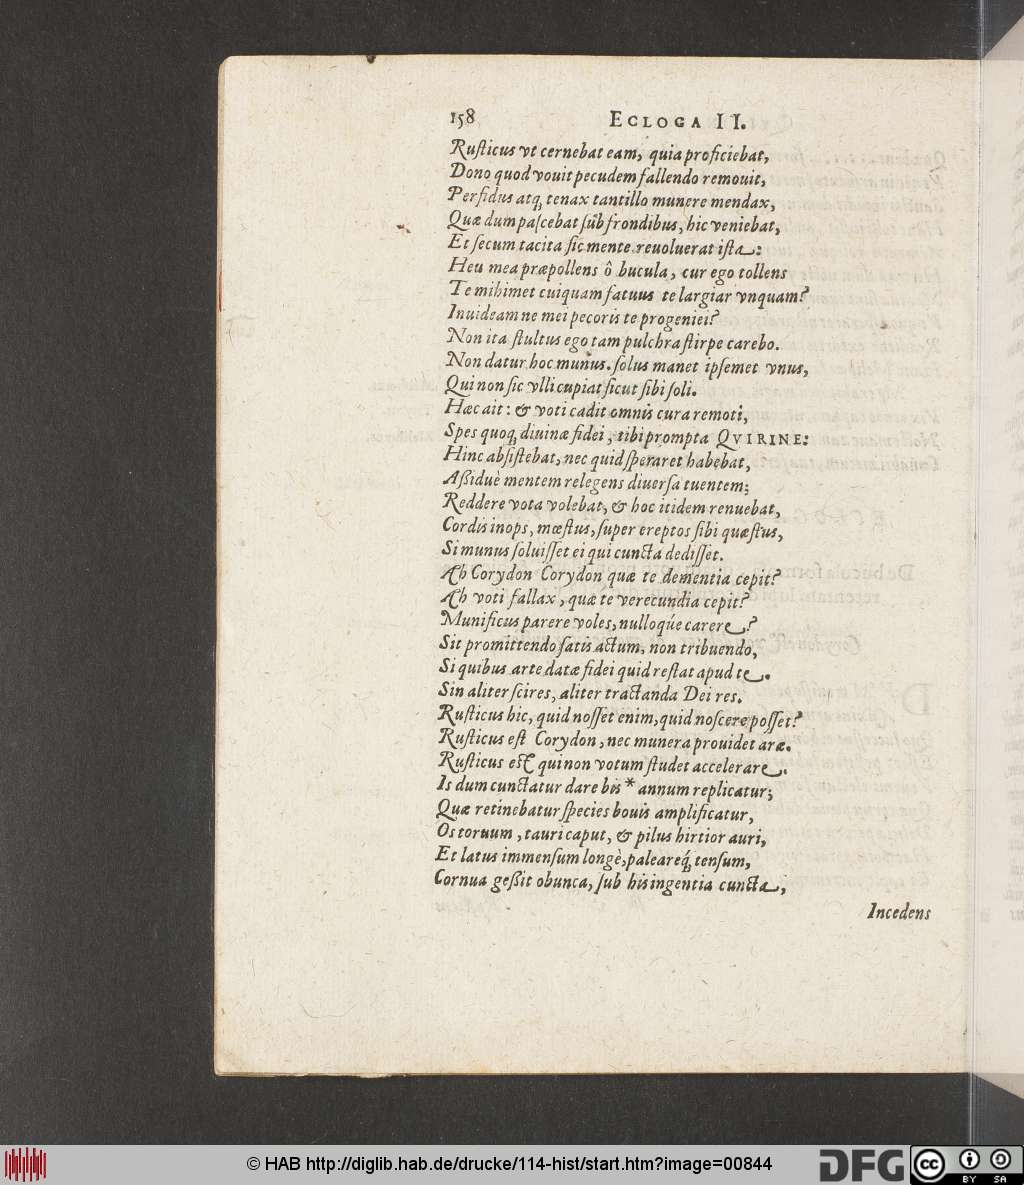 158 ECLOGA II.
Rusticus vt cernebat eam, quia proficiebat,
Dono quod vouit pecudem fallendo remouit,
Perfidus atq; tenax tantillo munere mendax,
Quæ dum pascebat sub frondibus, hic veniebat,
Et secum tacita sic mente reuoluerat ista:
Heu mea præpollens ô bucula, cur ego tollens
Te mihimet cuiquam fatuus te largiar vnquam?
Inuideamne mei pecoris te progeniei?
Non ita stultus ego tam pulchra stirpe carebo.
Non datur hoc munus. solus manet ipsemet vnus,
Qui non sic vlli cupiat sicut sibi soli.
Hæc ait: & voti cadit omnis cura remoti,
Spes quoq; diuinæ fidei, tibi prompta QVIRINE:
Hinc absistebat, nec quid speraret habebat,
Assiduè mentem relegens diuersa tuentem;
Reddere vota volebat, & hoc itidem renuebat,
Cordis inops, mœstus, super ereptos sibi quæstus,
Si munus soluisset ei qui cuncta dedisset.
Ah Corydon Corydon quæ te dementia cepit?
Ah voti fallax, quæ te verecundia cepit?
Munificus parere voles, nulloqúe carere?
Sit promittendo satis actum, non tribuendo,
Si quibus arte datæ fidei quid restat apud te.
Sin aliter scires, aliter tractanda Dei res.
Rusticus hic, quid nosset enim, quid noscere posset?
Rusticus est Corydon, nec munera prouidet aræ.
Rusticus est qui non votum studet accelerare.
Is dum cunctatur dare bis * annum replicatur;
Quæ retinebatur species bouis amplificatur,
Os toruum, tauri caput, & pilus hirtior auri,
Et latus immensum longè, paleareq́; tensum,
Cornua gessit obunca, sub his ingentia cuncta,
Incedens
© HAB http://diglib.hab.de/drucke/114-hist/start.htm?image=00844
DFG
cc
BY SA